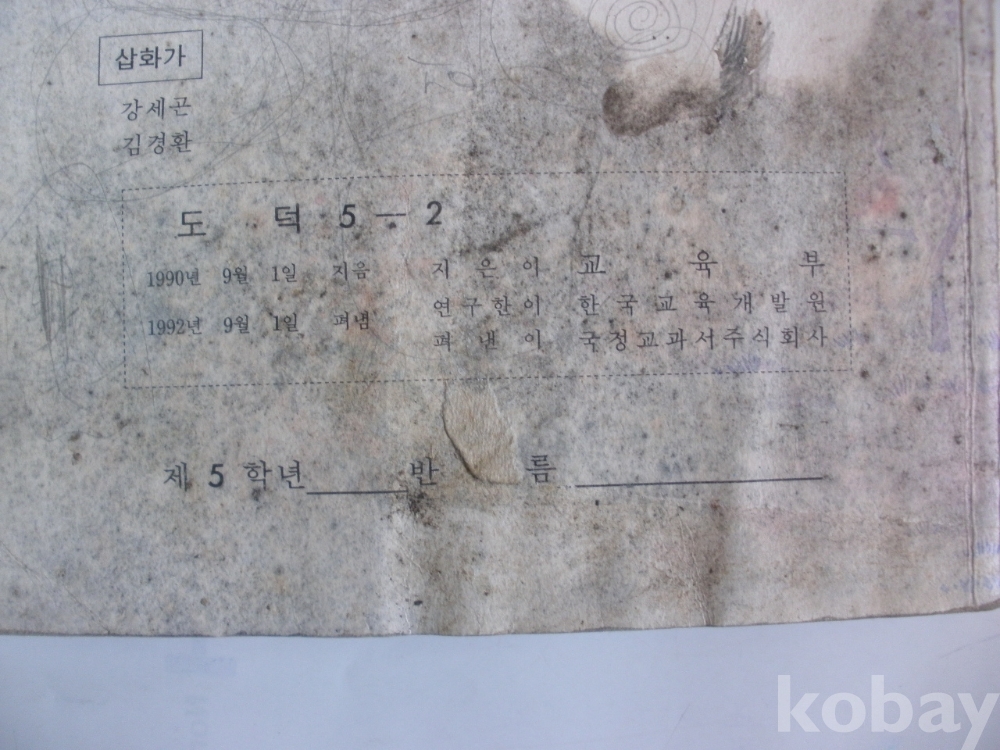 삽화가
강세곤
김경환
도 덕 5 — 2
1990년 9월 1일 지음 지은이 교육부
연구한이 한국교육개발원
1992년 9월 1일 펴냄 펴낸이 국정교과서주식회사
제 5 학년 반 름
kobay